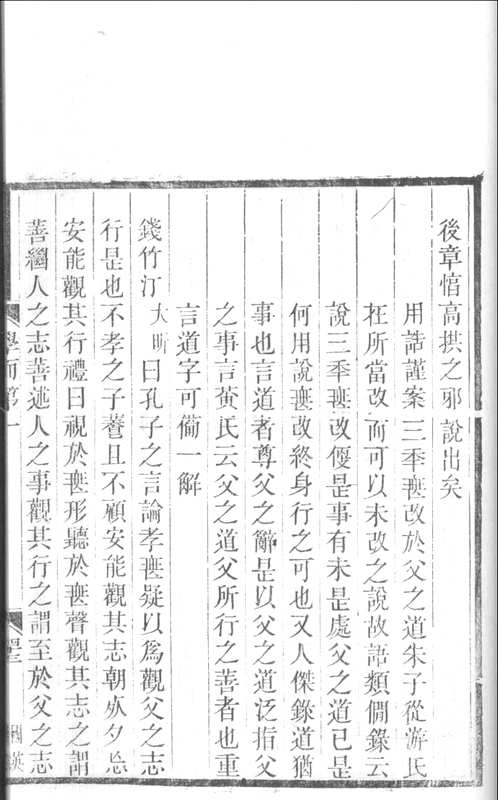 後章愔高拱之邪說出矣
用誥謹案三秊𣞤改於父之道朱子從游氏
在所當改而可以未改之說故語類僩錄云
說三秊𣞤改便是事有未是處父之道已是
何用說𣞤改終身行之可也又人傑錄道猶
事也言道者尊父之辭是以父之道泛指父
之事言黃氏云父之道父所行之善者也重
言道字可僃一解
錢竹汀大昕曰孔子之言論孝𣞤疑以爲觀父之志
行是也不孝之子養且不顧安能觀其志朝歾夕忘
安能觀其行禮曰視於𣞤形聽於𣞤聲觀其志之謂
善繼人之志善述人之事觀其行之謂至於父之志
學而第一